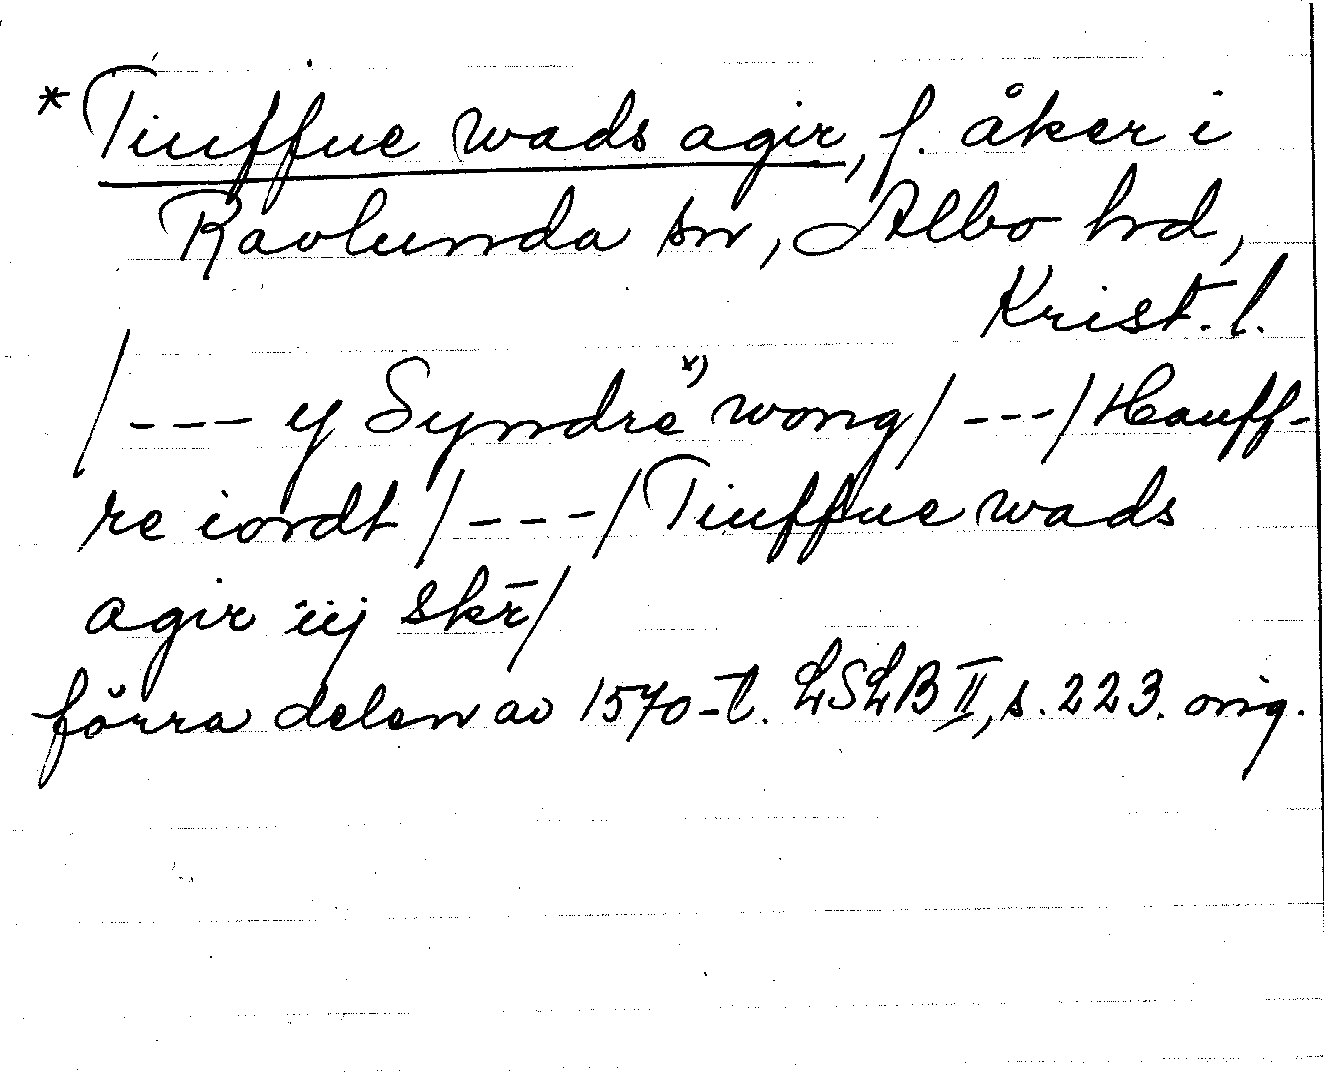 *Tiuffue wads agir, f. åker i
Ravlunda sn, Albo hd,
Krist. l.
/--- y Syndre x) wong/ ---/ Hauff-
re iordt /---/ Tiuffue wads
agir iij skr̄/
förra delen av 1570-t. LSLB II, s. 223. orig.